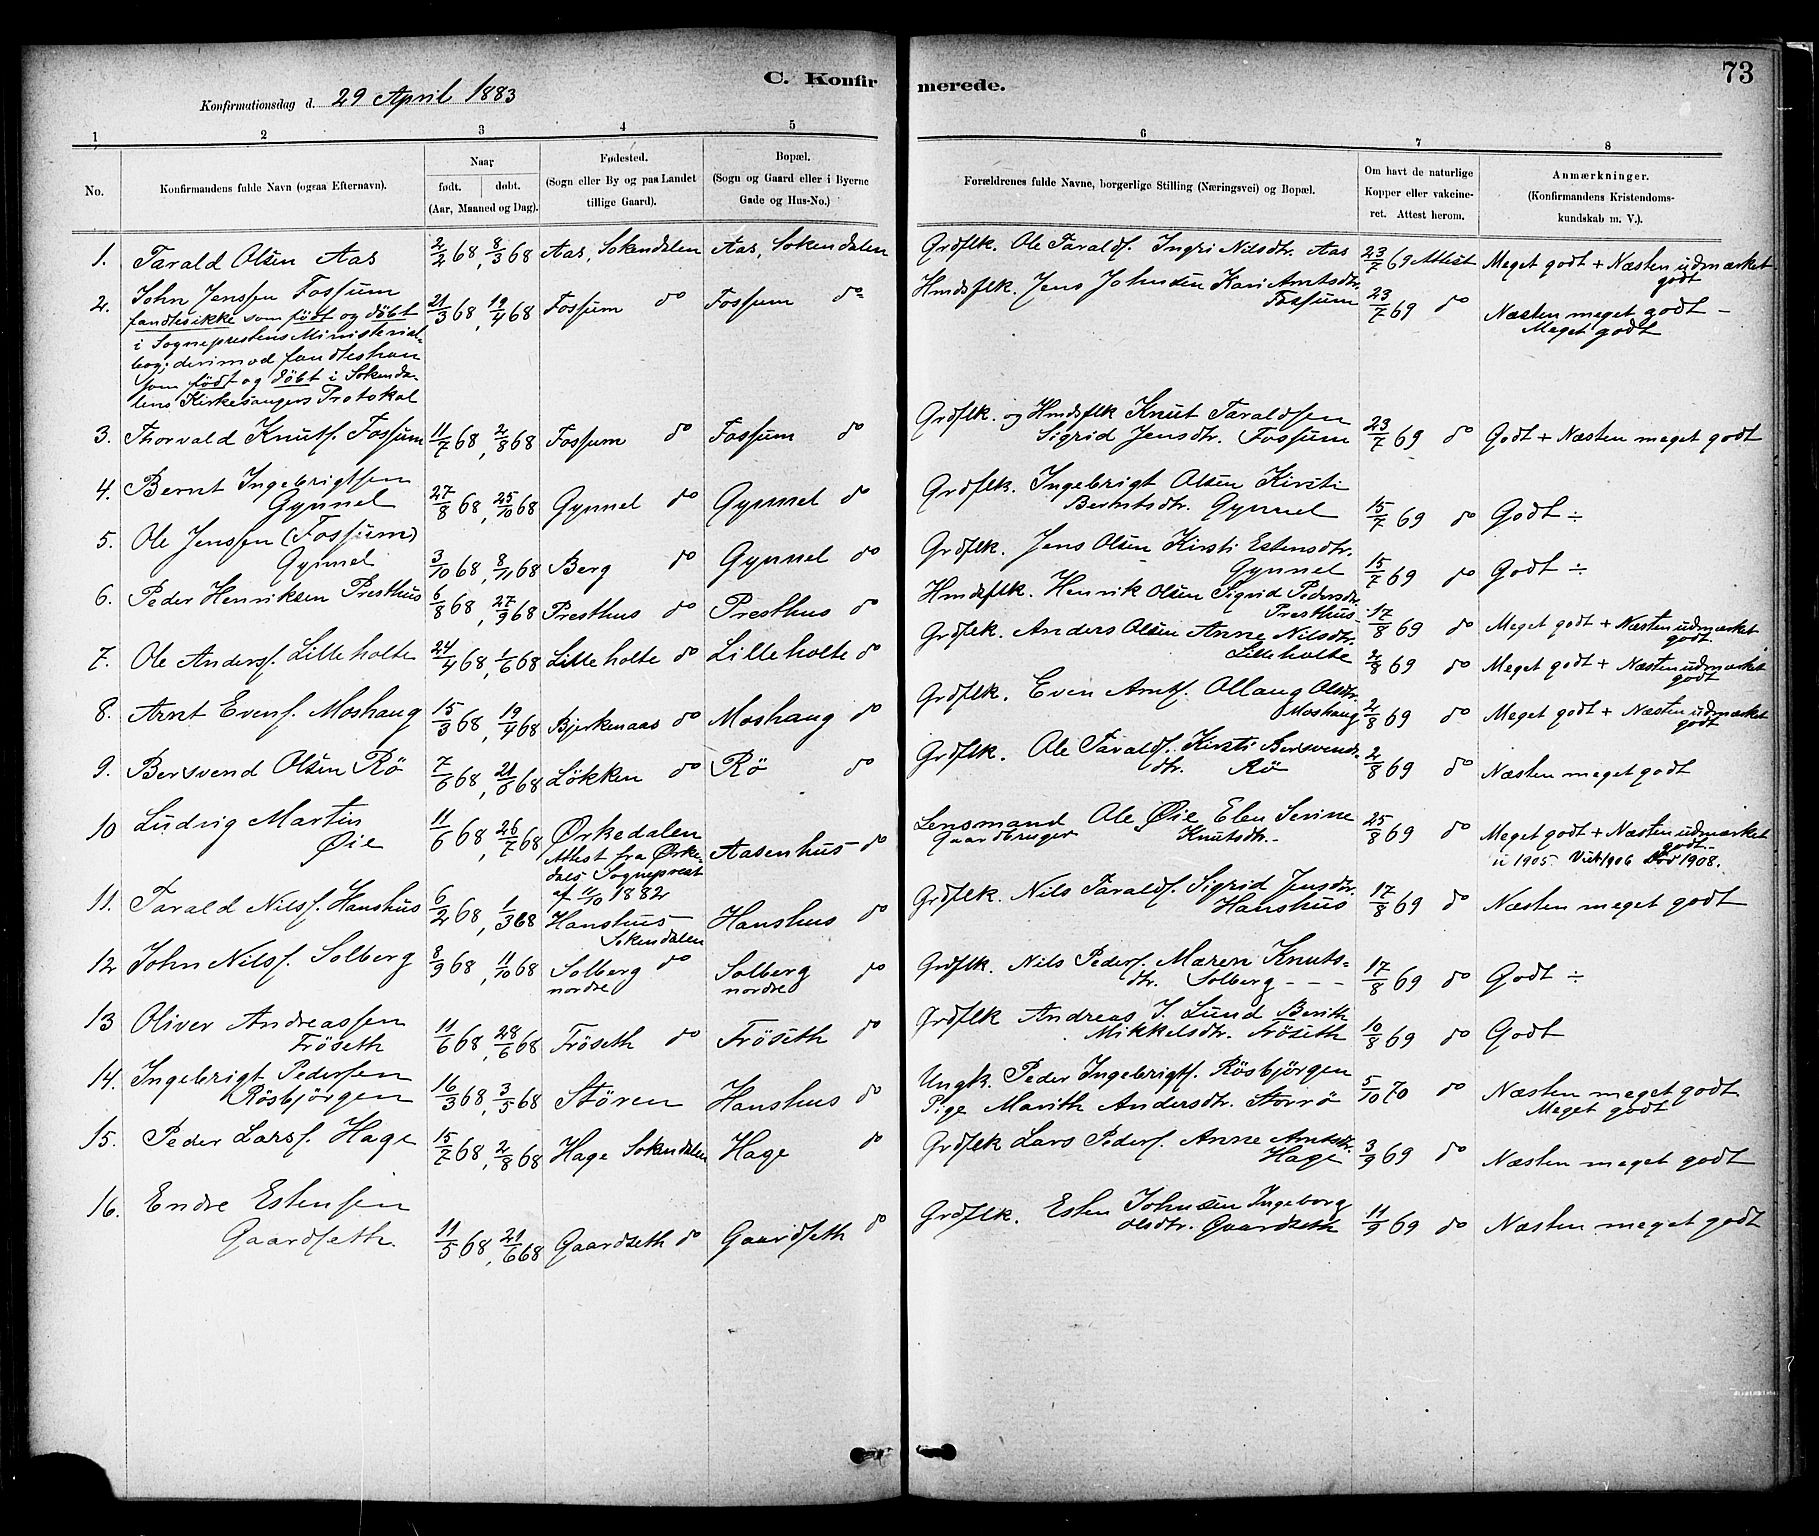 C. Konfirmerede.
73
Konfirmationsdag d. 29 April 1883
1 2 3 4 5 6 7 8
No.
Konfirmandens fulde Navn (ogsaa Efternavn).
Naar
født. døbt.
(Aar, Maaned og Dag).
Fødested.
(Sogn eller By og paa Landet
tillige Gaard).
Bopæl.
(Sogn og Gaard eller i Byerne
Gade og Hus-No.)
Forældrenes fulde Navne, borgerlige Stilling (Næringsvei) og Bopæl.
Om havt de naturlige
Kopper eller vakcine-
ret. Attest herom.
Anmærkninger.
(Konfirmandens Kristendoms-
kundskab m. V.).
1. Tarald Olsen Aas 2/2 68, 8/3 68 Aas, Sokendalen Aas, Sokendalen Grdflk. Ole Taraldf. Ingri Nilsdtr. Aas 23/7 69 Attest Meget godt + Næsten udmærket
godt
2. John Jenssen Fossum 21/3 68, 19/4 68 Fossum do Fossum do Hmdsflk. Jens Johnsen Kari Arntsdtr.
Fossum 23/7 69 do Næsten meget godt –
Meget godt
fandtes ikke som født og døbt
i Sogneprestens Ministerial-
bog; derimod fandtes han
som født og døbt i Sokenda-
lens Kirkesangers Protokol
3. Thorvald Knutf. Fossum 11/7 68, 2/8 68 Fossum do Fossum do Grdflk. og Hmdsflk Knut Taraldsen
Sigrid Jensdtr. Fossum 23/7 69 do Godt + Næsten meget godt
4. Bernt Ingebrigtsen
Gynnel 27/8 68, 25/10 68 Gynnel do Gynnel do Grdflk. Ingebrigt Olsen Kirsti
Berntsdtr. Gynnel 15/7 69 do Godt ÷
5. Ole Jenssen (Fossum)
Gynnel 3/10 68, 8/11 68 Berg do Gynnel do Grdflk. Jens Olsen Kirsti Estensdtr.
Gynnel 15/7 69 do Godt ÷
6. Peder Henriksen Presthus 6/8 68, 27/9 68 Presthus do Presthus do Hmdsflk. Henrik Olsen Sigrid Pedersdtr.
Presthus 17/8 69 do Meget godt + Næsten udmærket
godt
7. Ole Andersf. Lilleholte 24/4 68, 1/6 68 Lilleholte do Lilleholte do Grdflk. Anders Olsen Anne Nilsdtr.
Lilleholte 2/8 69 do Meget godt + Næsten udmærket
godt
8. Arnt Evenf. Moshaug 15/3 68, 19/4 68 Bjerkenaas do Moshaug do Grdflk. Even Arntf. Ollaug Olsdtr.
Moshaug 2/8 69 do Meget godt + Næsten udmærket
godt
9. Bersvend Olsen Rö 68, 68 Lökken do Rö do Grdflk. Ole Taraldf. Kirsti Bersvends-
dtr. Rö 2/8 69 do Næsten meget godt
10 Ludvig Martin
Øie 11/6 68, 26/7 68 Ørkedalen
Attest fra Ørke-
dals Sogneprest
af 11/10 1882 Aasenhus do Lensmand Ole Øie Elen Serine
Gaardbruger Knutsdtr. 25/8 69 do Meget godt + Næsten udmærket
godt
u 1905 Vidt 1906 Död 1908.
11. Tarald Nilsf. Hanshus 6/2 68, 1/3 68 Hanshus
Sokendalen Hanshus do Grdflk. Nils Taraldf. Sigrid Jensdtr.
Hanshus 17/8 69 do Næsten meget godt
12 John Nilsf. Solberg 8/9 68, 11/10 68 Solberg do
nordre Solberg do
nordre Grdflk. Nils Pederf. Maren Knuts-
dtr. Solberg - - - 17/8 69 do Godt ÷
13 Oliver Andreassen
Fröseth 11/6 68, 28/6 68 Fröseth do Fröseth do Grdflk Andreas I. Lund Berith
Mikkelsdtr. Fröseth 10/8 69 do Godt
14. Ingebrigt Pedersen
Rösbjörgen 16/3 68, 3/5 68 Stören Hanshus do Ungk. Peder Ingebrigtf. Rösbjörgen
Pige Marith Andersdtr. Storrö 5/10 70 do Næsten meget godt
Meget godt
15. Peder Larsf. Hage 15/7 68, 2/8 68 Hage Sokendalen Hage do Grdflk Lars Pederf. Anne Arntsdtr.
Hage 3/9 69 do Næsten meget godt
16. Endre Estensen
Gaardseth 11/5 68, 21/6 68 Gaardseth do Gaardseth do Grdflk. Esten Johnsen Ingeborg
Olsdtr. Gaardseth 11/9 69 do Næsten meget godt